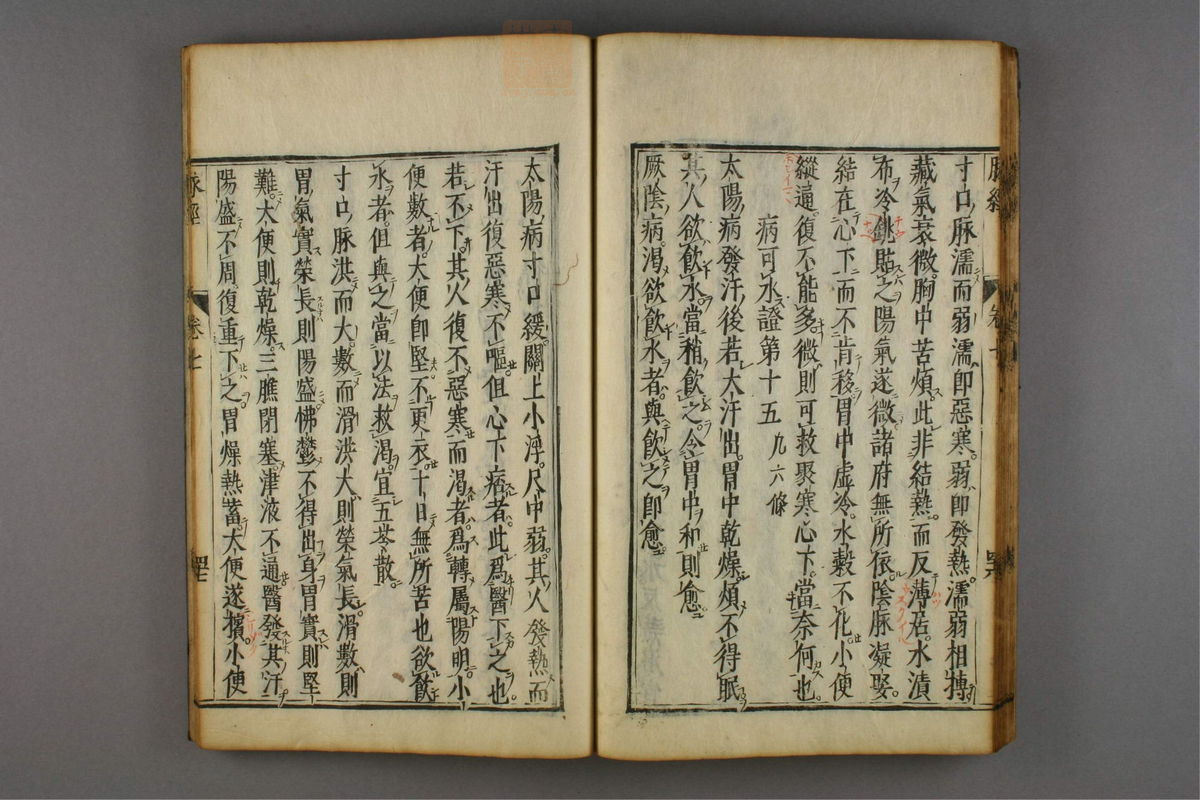 寸口脉濡而弱濡即惡寒弱即發熱濡弱相摶
藏氣衰微胸中苦煩此非結熱而反薄居水漬
布冷銚貼之陽氣遂微諸府無所依陰脉凝
結在心下而不肯移胃中虚冷水穀不化小便
縱通復不能多微則可救聚寒心下當奈何也
病可水證第十五 九六條
太陽病發汗後若大汗出胃中乾燥煩不得眠
其人欲飲水當稍飲之令胃中和則愈
厥陰病渴欲飲水者與飲之即愈
太陽病寸口緩關上小浮尺中弱其人發熱而
汗出復惡寒不嘔但心下痞者此為醫下之也
若不下其人復不惡寒而渴者為轉屬陽明小
便數者大便即堅不更衣十日無所苦也欲飲
水者但與之當以法救渴宜五苓散
寸口脉洪而大數而滑洪大則榮氣長滑數則
胃氣實榮長則陽盛怫鬱不得出身胃實則堅
難大便則乾燥三膲閉塞津液不通醫發其汗
陽盛不周復重下之胃燥熱蓄大便遂擯小便
脉經 卷七